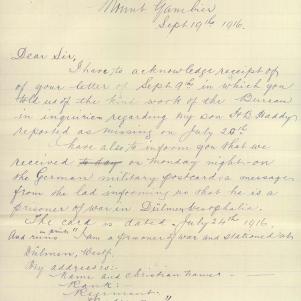 Mount Gambier
Sept. 19th 1916.
Dear Sir,
I have to acknowledge receipt of
of your letter of Sept 9th in which you
told us of the kind work of the Bureau
in inquiries regarding my son H.B. Haddy
reported as missing on July 20th
have also to inform you that we
received to-day on Monday night - on
the German military postcard a message
from the lad informing us that he is a
prisoner of war in Dülmen
The card is dated July 24th 1916.
And runs "I am a prisoner of war and stationed at
Dülmen, Westf.
My address is:-
Name and Christian name :-
Rank :-
Regiment.